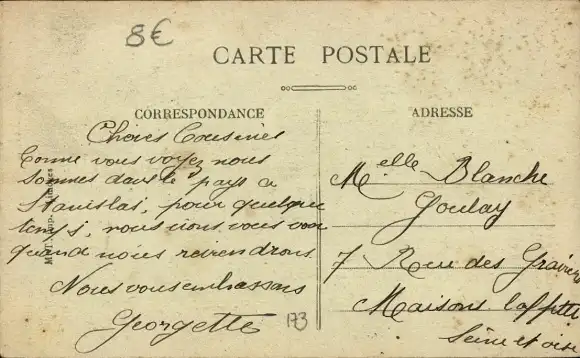 8€
CARTE POSTALE
CORRESPONDANCE
Chères Cousines
Comme vous voyez nous
sommes dans le pays a
Stanislas, pour quelque
temps, nous irons vous voir
quand nous reviendrons
Nous vous embrassons
Georgette
173
ADRESSE
Melle Blanche
Goulay
7 Rue des Graviers
Maisons Laffitte
Seine et oise